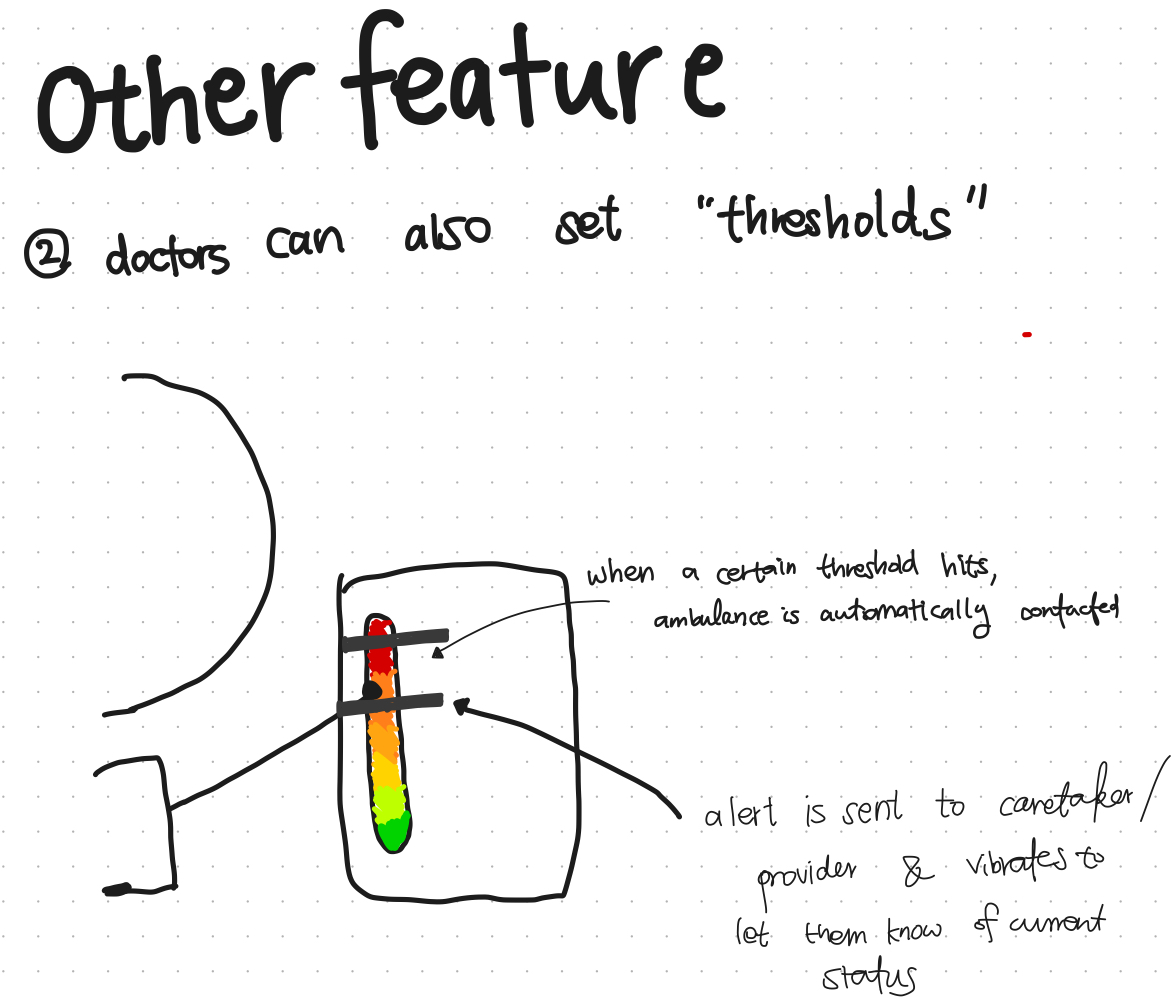 Other feature
② doctors can also set "thresholds"
when a certain threshold hits,
ambulance is automatically contacted
alert is sent to caretaker/
provider & vibrates to
let them know of current
status